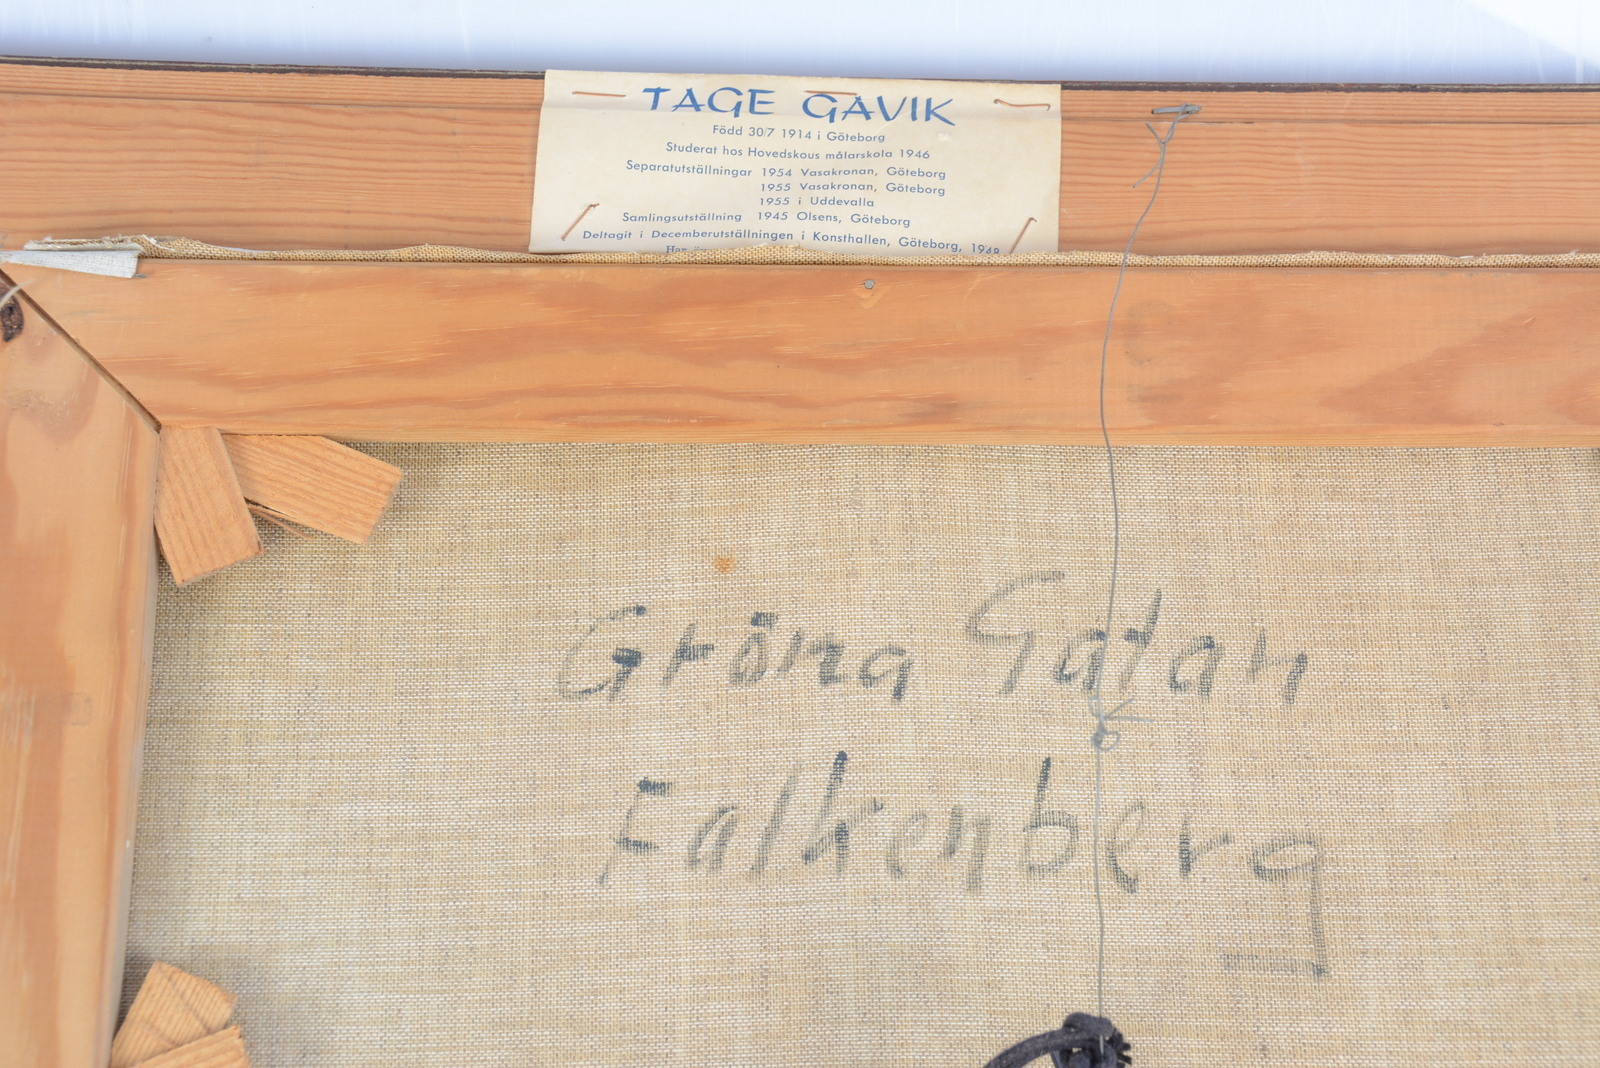 TAGE GAVIK
Född 30/7 1914 i Göteborg
Studerat hos Hovedskous målarskola 1946
Separatutställningar 1954 Vasakronan, Göteborg
1955 Vasakronan, Göteborg
1955 i Uddevalla
Samlingsutställning 1945 Olsens, Göteborg
Deltagit i Decemberutställningen i Konsthallen, Göteborg, 1948
Har
Gröna Gatan
Falkenberg